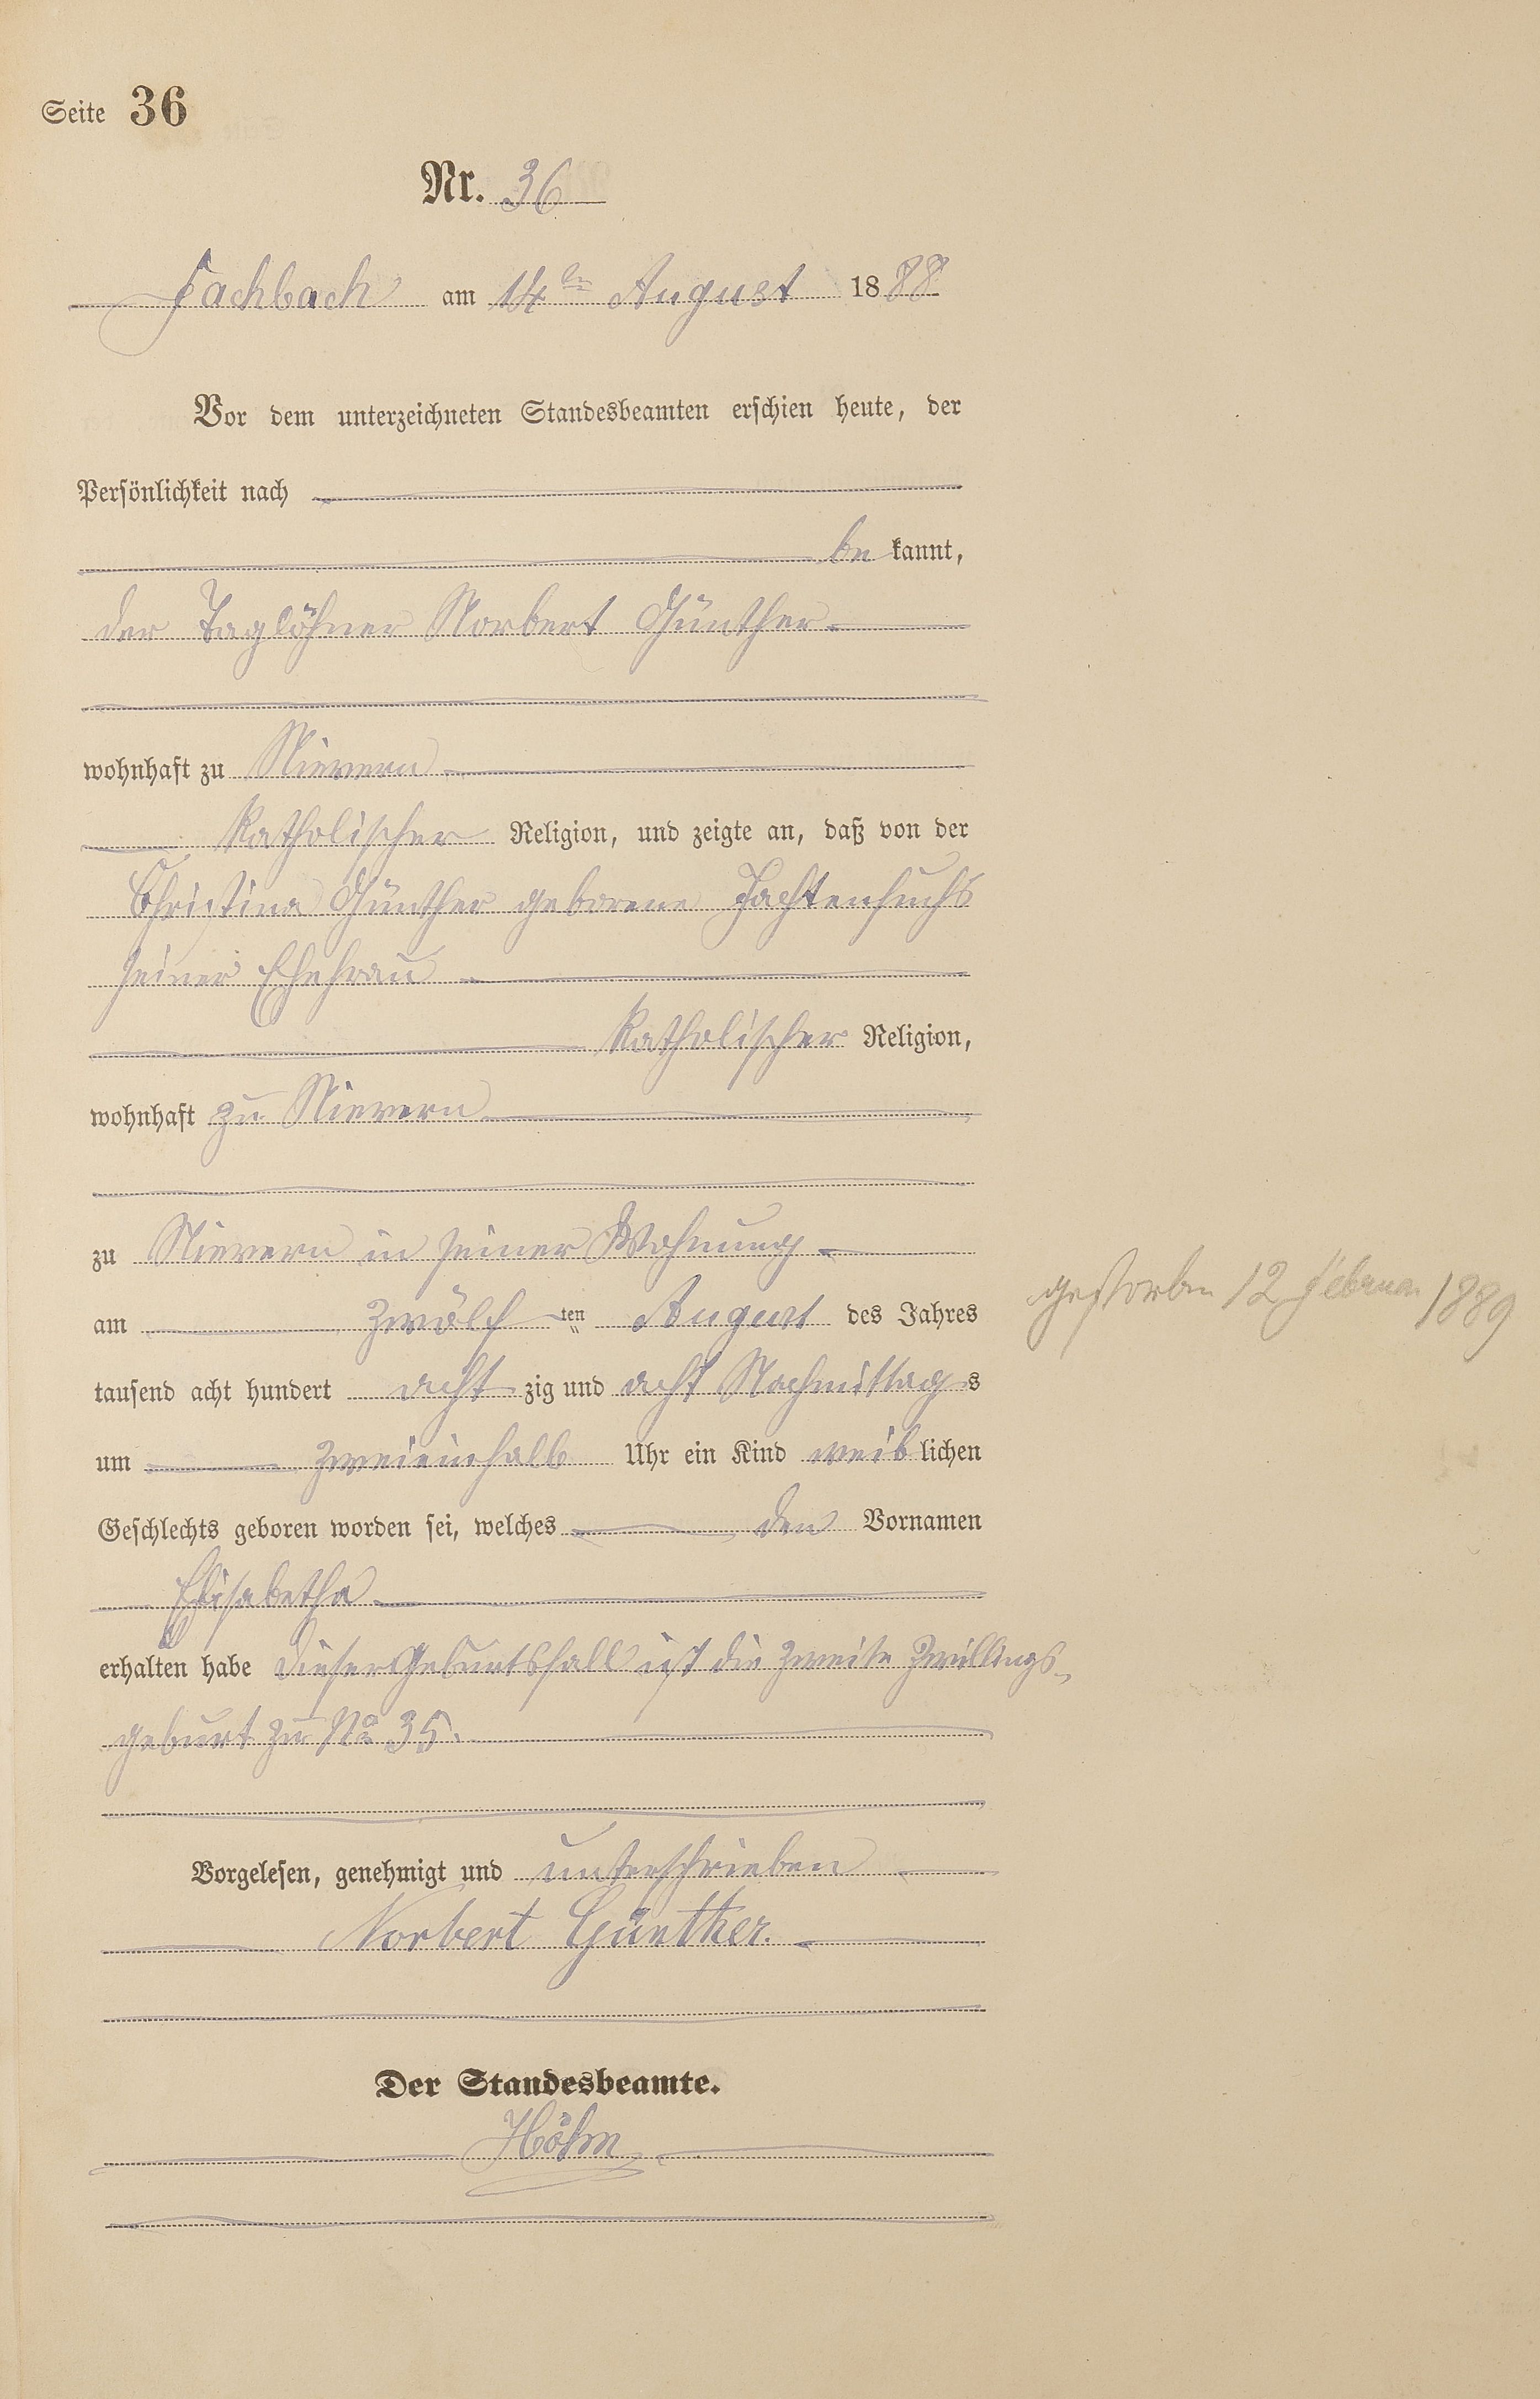 Seite 36
Nr. 36
Fachbach am 14ten August 1888
Vor dem unterzeichneten Standesbeamten erschien heute, der
Persönlichkeit nach
be kannt,
der Taglöhner Norbert Günther
wohnhaft zu Nievern
Katholischer Religion, und zeigte an, daß von der
Christina Günther geborene Fachtenfuchs
seiner Ehefrau
Katholischer Religion,
wohnhaft zu Nievern
zu Nievern in seiner Wohnung
am zwölf ten August des Jahres
tausend acht hundert acht zig und acht Nachmittags
um zweieinhalb Uhr ein Kind weiblichen
Geschlechts geboren worden sei, welches den Vornamen
Elisabetha
erhalten habe dieser Geburtsfall ist die zweite Zwillings-
geburt zu No 35.
Vorgelesen, genehmigt und unterschrieben
Norbert Günther.
Der Standesbeamte.
Höhn
gestorben 12 Februar 1889